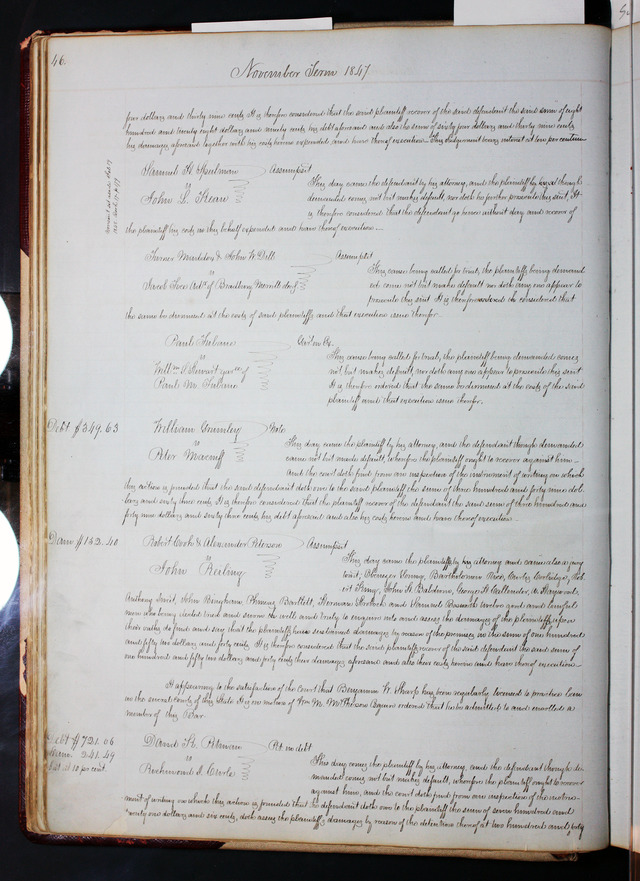 46.
November Term 1847
four dollars and thirty nine cents. It is therefore considered that the said plaintiff recover of the said defendant the said sum of eight
hundred and twenty eight dollars and ninety cents his debt aforesaid and also the sum of sixty four dollars and thirty nine cents
his damages aforesaid together with his costs herein expended and have thereof execution. This judgment bears interest at ten per centum
Samuel H. Spelman Assumpsit
vs
John L. Stean
This day came the defendant by his attorney, and the plaintiff by being though
demanded comes not but makes default, nor doth he further prosecute his suit. It
is therefore considered that the defendant go hence without day and recover of
the plaintiff his costs in this behalf expended and have thereof execution.
James Maddox & John W. Dill Assumpsit
vs
Jacob Admr. of Bradbury Morrill decd
This cause being called for trial, the plaintiffs being demand
ed came not but make default nor doth any one appear to
prosecute this suit. It is therefore considered that
the same be dismissed at the costs of said plaintiffs and that execution issue therefor.
Paul
vs
Will D. Stewart
Paul M.
This cause being called for trial, the plaintiff being demanded comes
not, but makes default, nor doth any one appear to prosecute this suit
It is therefore ordered that the same be dismissed at the costs of the said
plaintiff and that execution issue therefor.
Debt $349.63
William Debt
vs
Peter
This day came the plaintiff by his attorney, and the defendant though demanded
came not but made default, wherefore the plaintiff ought to recover against him
and the court doth find from an inspection of the instrument of writing on which
this action is founded that the said defendant doth owe to the said plaintiff the sum of three hundred and forty nine dol
lars and sixty three cents. It is therefore considered that the plaintiff recover of the defendant the said sum of three hundred and
forty nine dollars and sixty three cents his debt aforesaid and also his costs herein and have thereof execution.
Dams $152.40
Robert Cook & Alexander Peterson Assumpsit
vs
John
This day came the plaintiffs by his attorney and came also a jury
towit; Ebenezer Young, Bartholomew Rice, Rob
ert King, John H. Baldwin, George H. Callender,
Anthony John Bingham, Bartlett, Herman and Samuel twelve good and lawful
men who being elected tried and sworn the well and truly to enquire into and assess the damages of the plaintiffs, upon
their oaths do find and say that the plaintiffs have sustained damages by reason of the premises to the sum of one hundred
and fifty two dollars and forty cents. It is therefore considered that the said plaintiffs recover of the said defendant the said sum of
one hundred and fifty two dollars and forty cents their damages aforesaid and also their costs herein and have thereof execution.
It appearing to the satisfaction of the Court that Benjamin W. Sharp has been regularly licensed to practice law
in the several courts of this State. It is on motion of Wm. M. McPherson Esquire ordered that he be admitted to and enrolled a
member of this Bar.
Debt $721.06
Dams. 241.49
Int at 10 per cent.
David R. Pet. in debt
vs
Richmond J. Curle
This day comes the plaintiff by his attorney, and the defendant though de
manded comes not but makes default, wherefore the plaintiff ought to recover
against him, and the court doth find from an inspection of the instru
ment of writing on which this action is founded that the defendant doth owe to the plaintiff the sum of seven hundred and
twenty one dollars and six cents, doth assess the plaintiffs damages by reason of the detention thereof at two hundred and forty